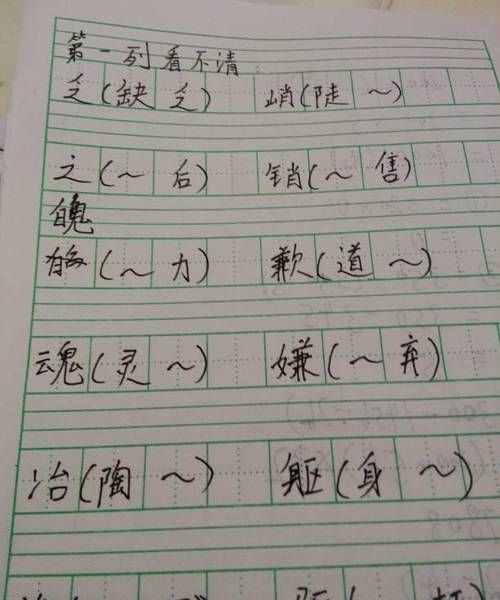 第一列看不清:
乏(缺乏) 峭(陡~)
之(~后) 销(~售)
魄
(~力) 歉(道~)
魂(灵~) 嫌(~弃)
冶(陶~) 躯(身~)